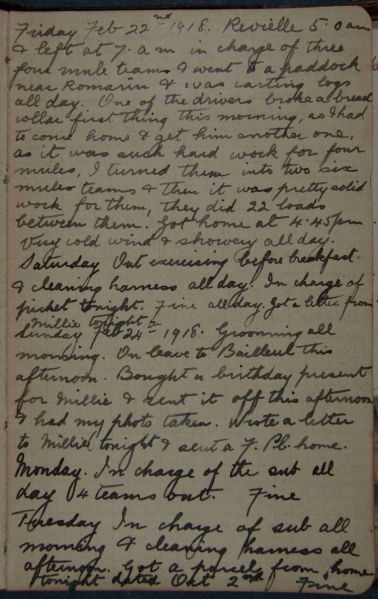 Friday Feb 22nd 1918. Revielle 5.0 am
& left at 7. a m in charge of three
four mule teams & went to a paddock
near Romarin & was carting logs
all day. One of the drivers broke a breast
collar first thing this morning, so I had
to come home & get him another one,
as it was such hard work for four
mules, I turned them into two six
mules teams & then it was pretty solid
work for them, they did 22 loads
between them. Got home at 4.45pm
Very cold wind & showery all day.
Saturday Out exercising before breakfast.
& cleaning harness all day. In charge of
picket tonight. Fine all day. Got a letter from
Millie tonight
Sunday Feb 24th 1918. Grooming all
morning. On leave to Bailleul this
afternoon. Bought a birthday present
for Millie & sent it off this afternoon
& had my photo taken. Wrote a letter
to Millie tonight & sent a F. Pb. home.
Monday. In charge of the sub all
day 4 teams out. Fine
Tuesday In charge of sub all
morning & cleaning harness all
afternoon. Got a parcels from home
tonight dated Oct 2nd Fine